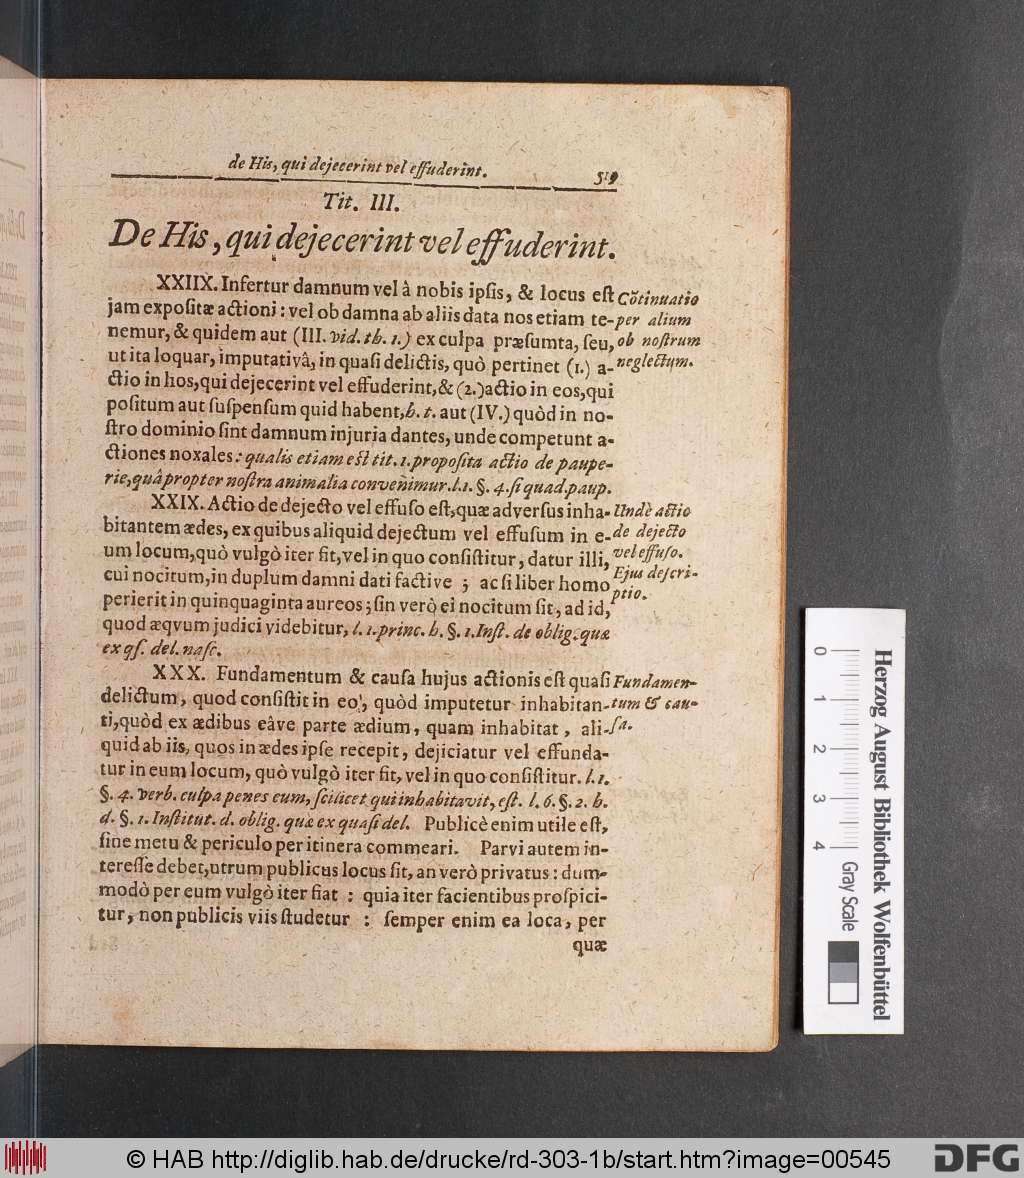 de His, qui dejecerint vel effuderint. 519
Tit. III.
De His, qui dejecerint vel effuderint.
XXIIX. Infertur damnum vel à nobis ipſis, & locus eſt
jam expoſitæ actioni: vel ob damna ab aliis data nos etiam te-
nemur, & quidem aut (III. vid. th. 1.) ex culpa præſumta, ſeu,
ut ita loquar, imputativâ, in quaſi delictis, quò pertinet (1.) a-
ctio in hos, qui dejecerint vel effuderint, & (2.) actio in eos, qui
poſitum aut ſuſpenſum quid habent, h. t. aut (IV.) quòd in no-
ſtro dominio ſint damnum injuria dantes, unde competunt a-
ctiones noxales: qualis etiam eſt tit. 1. propoſita actio de paupe-
rie, quâ propter noſtra animalia convenimur. l. 1. §. 4. ſi quad. paup.
Cõtinuatio
per alium
ob noſtrum
neglectum.
XXIX. Actio de dejecto vel effuſo eſt, quæ adverſus inha-
bitantem ædes, ex quibus aliquid dejectum vel effuſum in e-
um locum, quò vulgò iter fit, vel in quo conſiſtitur, datur illi,
cui nocitum, in duplum damni dati factive ; ac ſi liber homo
perierit in quinquaginta aureos; ſin verò ei nocitum ſit, ad id,
quod æqvum judici videbitur, l. 1. princ. h. §. 1. Inſt. de oblig. quæ
ex qſ. del. naſc.
Undè actio
de dejecto
vel effuſo.
Ejus deſcri-
ptio.
XXX. Fundamentum & cauſa hujus actionis eſt quaſi
delictum, quod conſiſtit in eo, quòd imputetur inhabitan-
ti, quòd ex ædibus eâve parte ædium, quam inhabitat, ali-
quid ab iis, quos in ædes ipſe recepit, dejiciatur vel effunda-
tur in eum locum, quò vulgò iter fit, vel in quo conſiſtitur. l. 1.
§. 4. verb. culpa penes eum, ſcilicet qui inhabitavit, eſt. l. 6. §. 2. h.
d. §. 1. Inſtitut. d. oblig. quæ ex quaſi del. Publicè enim utile eſt,
ſine metu & periculo per itinera commeari. Parvi autem in-
tereſſe debet, utrum publicus locus ſit, an verò privatus: dum-
modò per eum vulgò iter fiat : quia iter facientibus proſpici-
tur, non publicis viis ſtudetur : ſemper enim ea loca, per
quæ
Fundamen-
tum & cau-
ſa.
0 1 2 3 4
Gray Scale
Herzog August Bibliothek Wolfenbüttel
© HAB http://diglib.hab.de/drucke/rd-303-1b/start.htm?image=00545
DFG